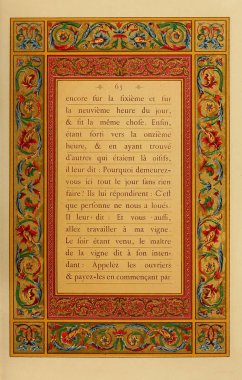 63
encore ſur la ſixième et ſur
la neuvième heure du jour,
& fit la même choſe. Enfin,
étant ſorti vers la onzième
heure, & en ayant trouvé
d'autres qui étaient là oiſifs,
il leur dit : Pourquoi demeurez-
vous ici tout le jour ſans rien
faire ? Ils lui répondirent : C'eſt
que perſonne ne nous a loués.
Il leur dit : Et vous auſſi,
allez travailler à ma vigne.
Le ſoir étant venu, le maître
de la vigne dit à ſon inten-
dant : Appelez les ouvriers
& payez-les en commençant par